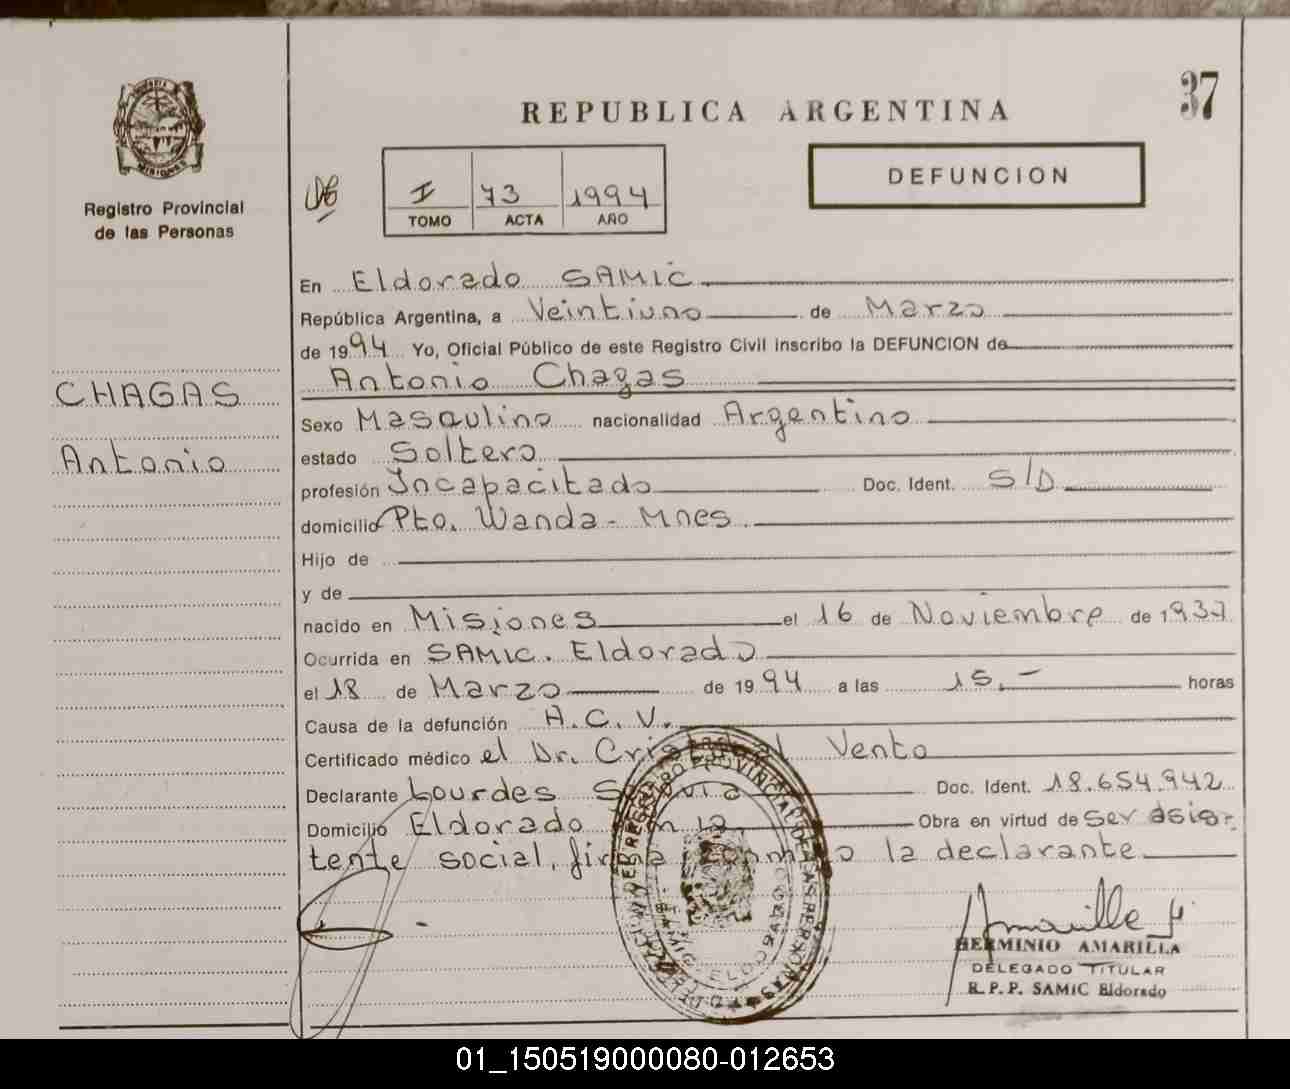 37
REPUBLICA ARGENTINA
MISIONES
Registro Provincial
de las Personas
DEFUNCION
I 73 1994
TOMO ACTA AÑO
En Eldorado SAMIC
República Argentina, a Veintiuno de Marzo
de 1994 Yo, Oficial Público de este Registro Civil inscribo la DEFUNCION de
Antonio Chagas
CHAGAS
Antonio
Sexo Masculino nacionalidad Argentino
estado Soltero
profesión Incapacitado Doc. Ident. S/D
domicilio Pto. Wanda - Mnes
Hijo de
y de
nacido en Misiones el 16 de Noviembre de 1937
Ocurrida en SAMIC. Eldorado
el 18 de Marzo de 1994 a las 15.- horas
Causa de la defunción A.C.V.
Certificado médico el Dr. Vento
Declarante Lourdes Doc. Ident. 18.654.942
Domicilio Eldorado Obra en virtud de ser asis-
tente social, firma la declarante
HERMINIO AMARILLA
DELEGADO TITULAR
R.P.P. SAMIC Eldorado
01_150519000080-012653